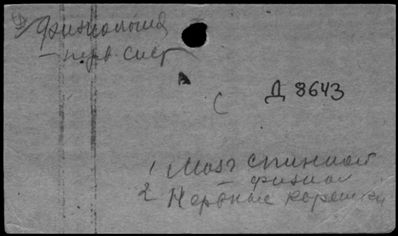 Физиология
— нерв. сист
С Д 8643
1 Мозг спинной
— физиол
2 Нервные корешки